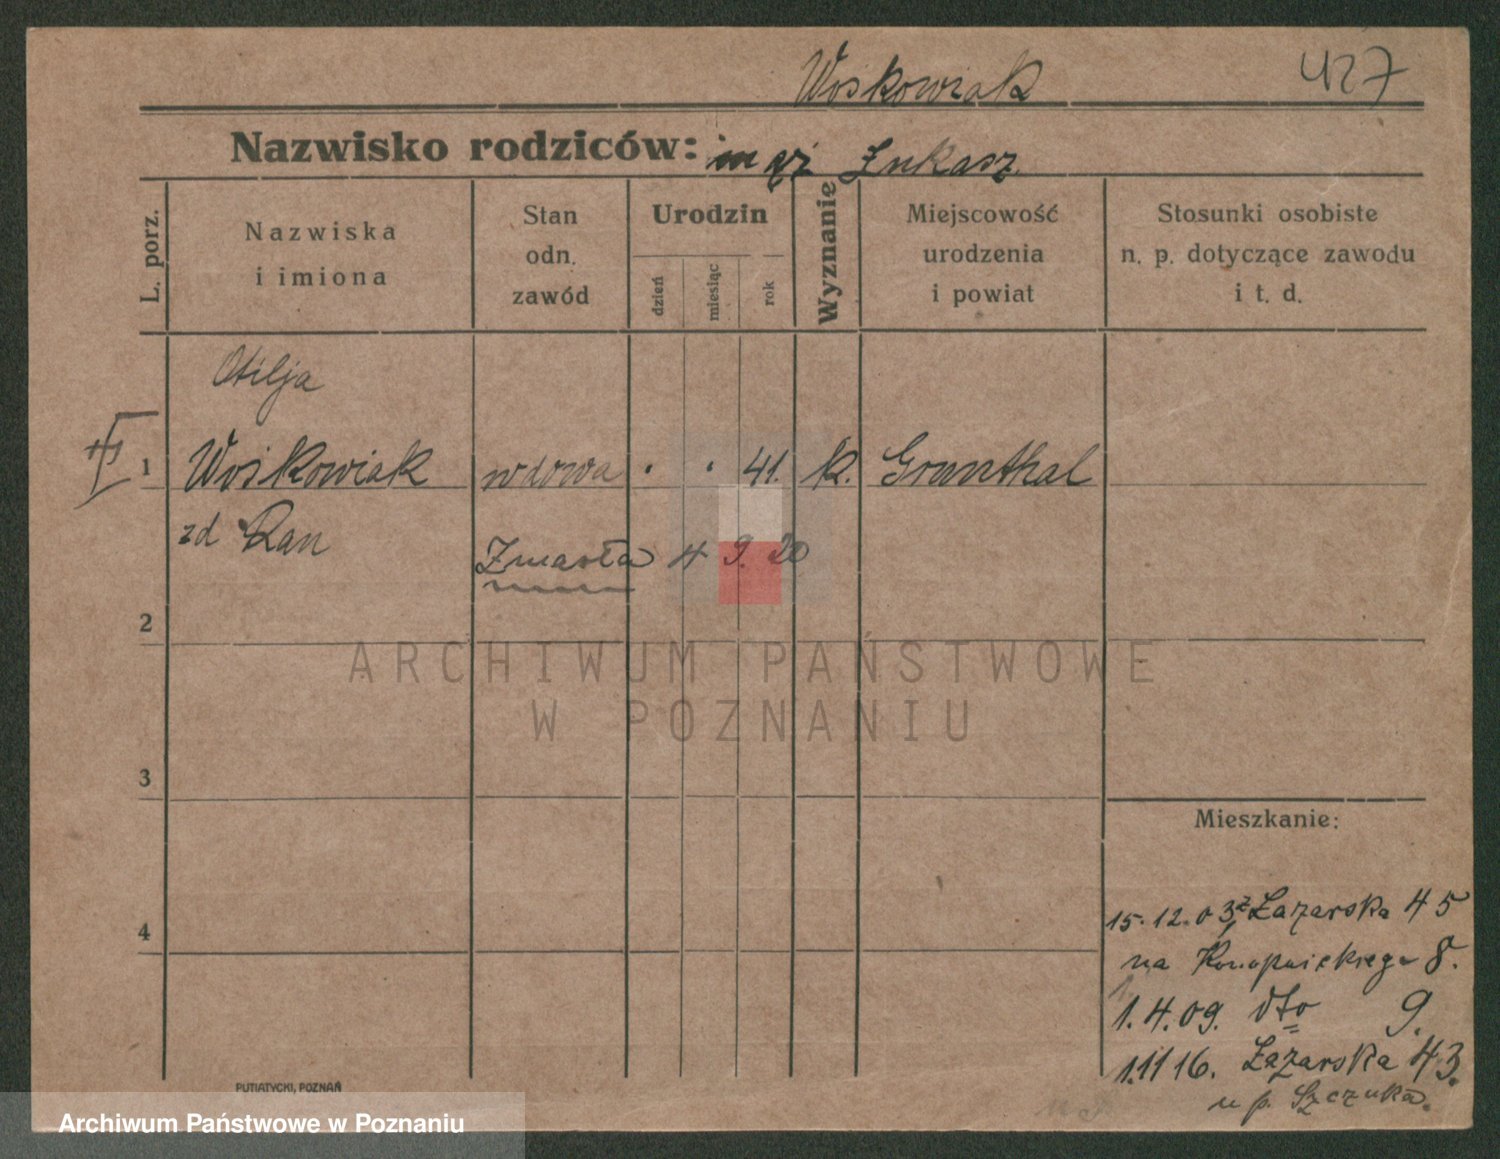 Woskowiak 427
Nazwisko rodziców: mąż Łukasz
L. porz.
Nazwiska
i imiona
Stan
odn.
zawód
Urodzin
dzień
miesiąc
rok
Wyznanie
Miejscowość
urodzenia
i powiat
Stosunki osobiste
n. p. dotyczące zawodu
i t. d.
Otilja
1 Wośkowiak wdowa · · 41. k. Grunthal
zd Ran
Zmarła 4 9. 20
2
ARCHIWUM PAŃSTWOWE
W POZNANIU
3
Mieszkanie:
4
15.12.03 z Łazarska 45
na Konopnickiego 8.
1.4.09. dto 9.
1.11 16. Łazarska 43.
u p. Szczuka.
PUTIATYCKI, POZNAŃ
Archiwum Państwowe w Poznaniu